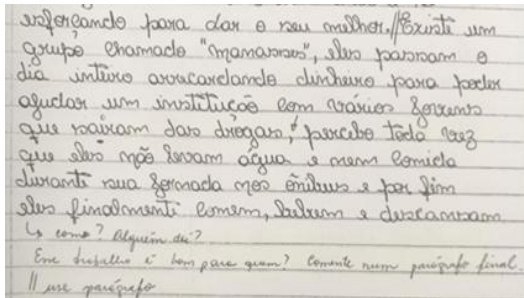 esforcando para dar o seu melhor.//Existe um
grupo chamado "manasses", eles passam o
dia inteiro arracardando dinheiro para poder
ajudar um instituição com vários jovens
que saíram das drogas, percebo toda vez
que eles não levam água e nem comida
durante sua jornada nos ônibus e por fim
eles finalmenti comem, bebem e descansam
↳ como? Alguém dá?
Esse trabalho é bom para quem? Comente num parágrafo final.
// use parágrafo